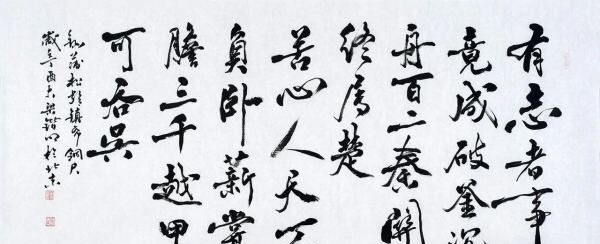 有志者事
竟成破釜沉
舟百二秦關
終屬楚
苦心人天不
負臥薪嘗
膽三千越甲
可吞吳
錄蒲松齡鎮布銅尺